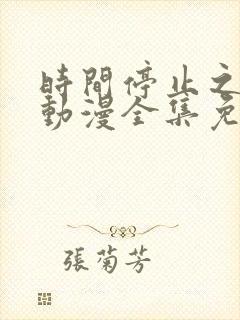 時間停止之
動漫全集免
張菊芳